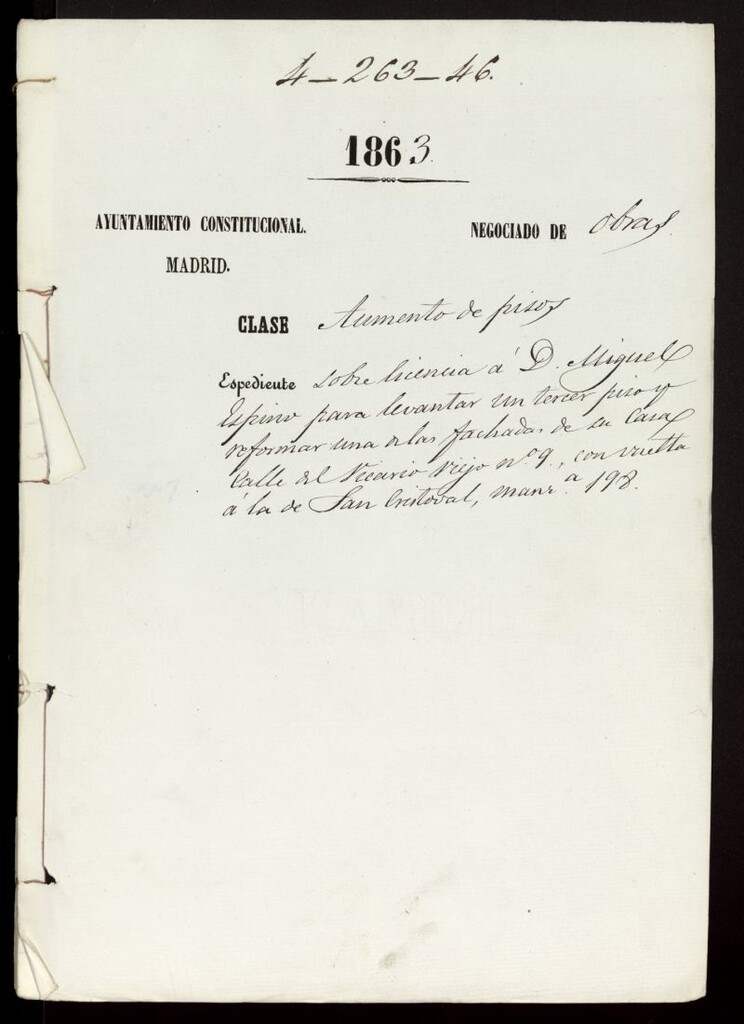 4-263-46.
1863
AYUNTAMIENTO CONSTITUCIONAL.
MADRID.
NEGOCIADO DE obras.
CLASE Aumento de pisos
Espediente sobre licencia á D. Miguel
Espino para levantar un tercer piso y
reformar una de las fachadas de su Casa
Calle del Vicario Viejo nº 9., con vuelta
á la de San Cristoval, manz.ª 198.